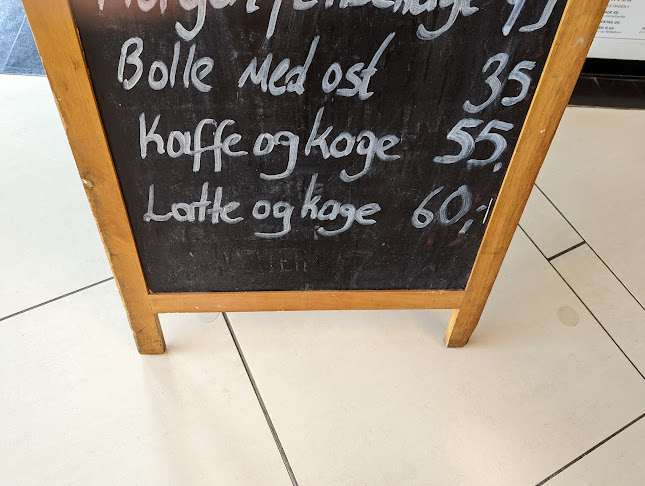 Bolle Med ost 35
Kaffe og kage 55,
Latte og kage 60,-